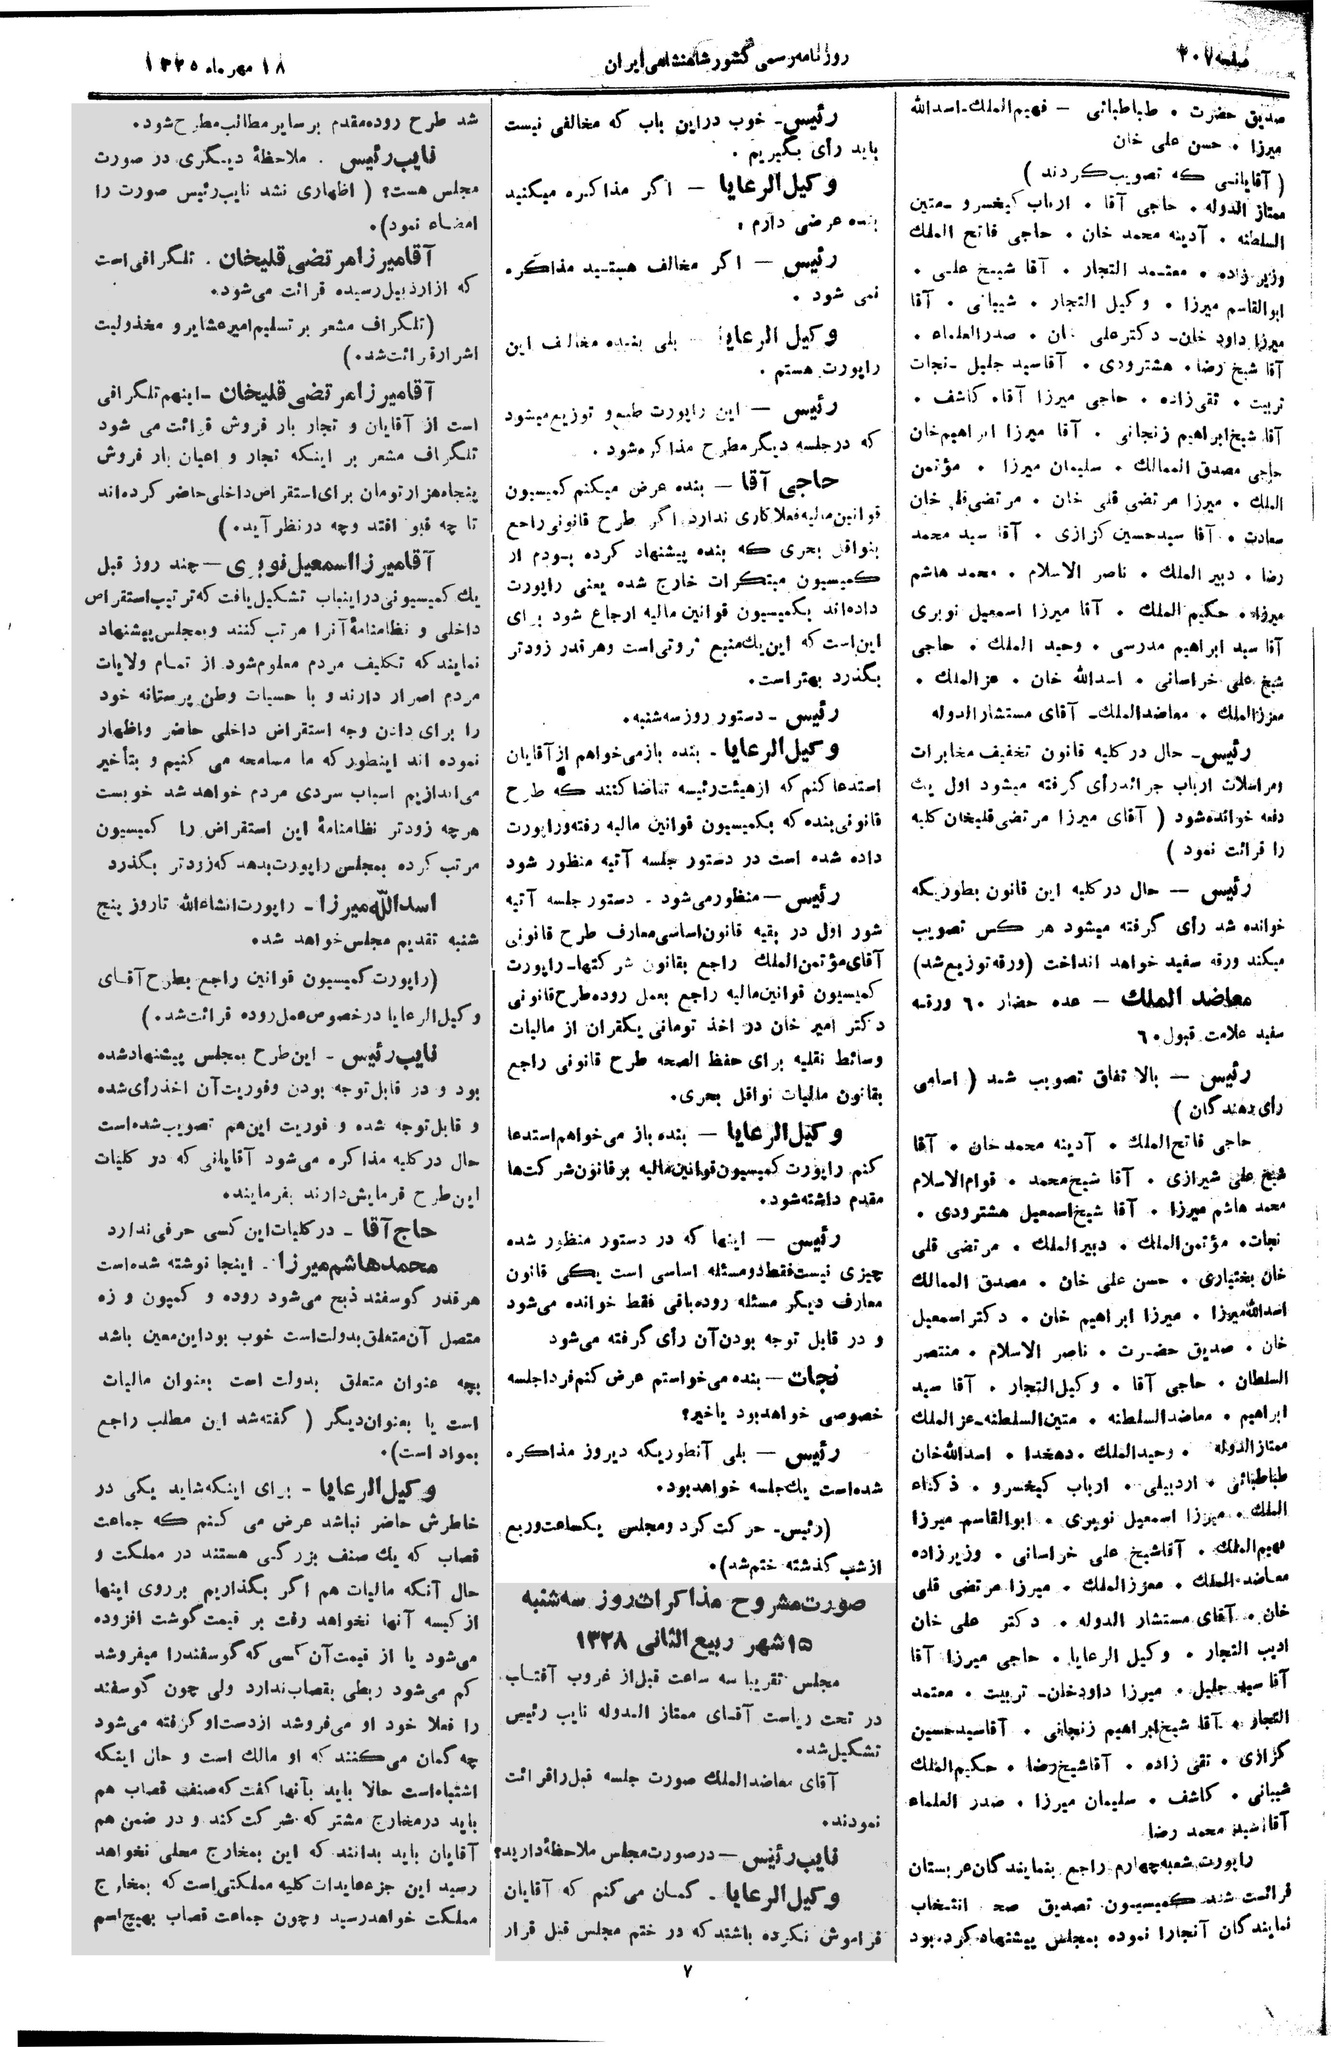 صفحه ۳۰۷
روزنامه رسمی کشور شاهنشاهی ایران
۱۸ مهرماه ۱۳۲۵
صدیق حضرت ۰ طباطبائی – فهیم‌الملك-اسدالله
میرزا ۰ حسن علی خان
( آقایانی که تصویب کردند )
ممتاز الدوله۰ حاجی آقا ۰ ارباب کیخسرو –متین
السلطنه ۰ آدینه محمد خان ۰ حاجی فاتح الملك
وزیرزاده ۰ معتمد التجار ۰ آقا شیخ علی ۰
ابوالقاسم میرزا ۰ وکیل التجار ۰ شیبانی ۰ آقا
میرزا داود خان- دکتر علی خان ۰ صدرالعلماء ۰
آقا شیخ رضا۰ هشترودی ۰ آقاسید جلیل -نجات
تربیت ۰ تقی‌زاده ۰ حاجی میرزا آقا۰ کاشف ۰
آقا شیخ‌ابراهیم زنجانی ۰ آقا میرزا ابراهیم‌خان
حاجی مصدق الممالك ۰ سلیمان میرزا ۰ مؤتمن
الملك ۰ میرزا مرتضی قلی خان ۰ مرتضی قلی خان
سعادت ۰ آقا سیدحسین کزازی ۰ آقا سید محمد
رضا ۰ دبیر الملك ۰ ناصر الاسلام ۰ محمد هاشم
میرزا۰ حکیم الملك ۰ آقا میرزا اسمعیل نوبری
آقا سید ابراهیم مدرسی ۰ وحید الملك ۰ حاجی
شیخ علی خراسانی ۰ اسدالله خان ۰ عزالملك ۰
معززالملك ۰ معاضدالملك- آقای مستشارالدوله
رئیس- حال در کلیه قانون تخفیف مخابرات
ومراسلات ارباب جرائد رأی گرفته میشود اول یك
دفعه خوانده شود ( آقای میرزا مرتضی قلیخان کلیه
را قرائت نمود )
رئیس – حال در کلیه این قانون بطوریکه
خوانده شد رأی گرفته میشود هر کس تصویب
میکند ورقه سفید خواهد انداخت (ورقه توزیع شد)
معاضد الملك – عده حضار ۶۰ ورقه
سفید علامت قبول ۶۰
رئیس – بالاتفاق تصویب شد ( اسامی
رأی دهندگان )
حاجی فاتح‌الملك ۰ آدینه محمد خان ۰ آقا
شیخ علی شیرازی ۰ آقا شیخ محمد ۰ قوام‌الاسلام
محمد هاشم میرزا ۰ آقا شیخ‌اسمعیل هشترودی ۰
نجات۰ مؤتمن الملك ۰ دبیرالملك ۰ مرتضی قلی
خان بختیاری ۰ حسن علی خان ۰ مصدق الممالك
اسدالله‌میرزا ۰ میرزا ابراهیم خان ۰ دکتر اسمعیل
خان ۰ صدیق حضرت ۰ ناصر الاسلام ۰ منتصر
السلطان ۰ حاجی آقا ۰ وکیل‌التجار ۰ آقا سید
ابراهیم ۰ معاضد السلطنه ۰ متین‌السلطنه-عزالملك
ممتازالدوله ۰ وحیدالملك ۰ دهخدا ۰ اسدالله‌خان
طباطبائی ۰ اردبیلی ۰ ارباب کیخسرو ۰ ذکاء
الملك ۰ میرزا اسمعیل نوبری ۰ ابوالقاسم میرزا
فهیم‌الملك ۰ آقاشیخ علی خراسانی ۰ وزیرزاده
معاضدالملك ۰ معززالملك ۰ میرزا مرتضی قلی
خان ۰ آقای مستشار الدوله ۰ دکتر علی خان
ادیب التجار ۰ وکیل الرعایا ۰ حاجی میرزا آقا
آقا سید جلیل ۰ میرزا داودخان- تربیت ۰ معتمد
التجار ۰ آقا شیخ‌ابراهیم زنجانی ۰ آقاسیدحسین
کزازی ۰ تقی زاده ۰ آقاشیخ‌رضا ۰ حکیم‌الملك
شیبانی ۰ کاشف ۰ سلیمان میرزا ۰ صدر العلماء
آقا سید محمد رضا
راپورت شعبه چهارم راجع بنمایندگان عربستان
قرائت شد کمیسیون تصدیق صحت انتخاب
نمایندگان آنجا را نموده بمجلس پیشنهاد کرد بود
رئیس- خوب در این باب که مخالفی نیست
باید رأی بگیریم ۰
وکیل‌الرعایا – اگر مذاکره میکنید
بنده عرضی دارم ۰
رئیس – اگر مخالف هستید مذاکره
نمی شود ۰
وکیل الرعایا – بلی بنده مخالف این
راپورت هستم ۰
رئیس – این راپورت طبع و توزیع میشود
که در جلسه دیگر مطرح مذاکره شود ۰
حاجی آقا – بنده عرض میکنم کمیسیون
قوانین مالیه فعلا کاری ندارد اگر طرح قانونی راجع
بنواقل بحری که بنده پیشنهاد کرده بودم از
کمیسیون مبتکرات خارج شده یعنی راپورت
داده‌اند بکمیسیون قوانین مالیه ارجاع شود برای
این است که این یك منبع ثروتی است و هر قدر زودتر
بگذرد بهتر است۰
رئیس – دستور روز سه شنبه۰
وکیل‌الرعایا- بنده باز می‌خواهم از آقایان
استدعا کنم که از هیئت رئیسه تقاضا کنند که طرح
قانونی بنده که بکمیسیون قوانین مالیه رفته و راپورت
داده شده است در دستور جلسه آتیه منظور شود
رئیس – منظور می‌شود - دستور جلسه آتیه
شور اول در بقیه قانون اساسی معارف طرح قانونی
آقای مؤتمن‌الملك راجع بقانون شرکتها-راپورت
کمیسیون قوانین مالیه راجع بعمل روده طرح قانونی
دکتر امیر خان در اخذ تومانی یکقران از مالیات
وسائط نقلیه برای حفظ الصحه طرح قانونی راجع
بقانون مالیات نواقل بحری۰
وکیل‌الرعایا – بنده باز می‌خواهم استدعا
کنم راپورت کمیسیون قوانین مالیه بر قانون شرکت‌ها
مقدم داشته شود۰
رئیس – اینها که در دستور منظور شده
چیزی نیست فقط دو مسئله اساسی است یکی قانون
معارف دیگر مسئله روده باقی فقط خوانده می‌شود
و در قابل توجه بودن آن رأی گرفته می‌شود
نجات – بنده می‌خواستم عرض کنم فردا جلسه
خصوصی خواهد بود یا خیر؟
رئیس – بلی آنطوریکه دیروز مذاکره
شده است یك جلسه خواهد بود۰
(رئیس- حرکت کرد و مجلس یکساعت و ربع
از شب گذشته ختم شد)۰
صورت مشروح مذاکرات روز سه شنبه
۱۵ شهر ربیع الثانی ۱۳۲۸
مجلس تقریبا سه ساعت قبل از غروب آفتاب
در تحت ریاست آقای ممتاز الدوله نایب رئیس
تشکیل شد۰
آقای معاضدالملك صورت جلسه قبل را قرائت
نمودند۰
نایب رئیس – در صورت مجلس ملاحظهٔ دارید؟
وکیل الرعایا ۰ گمان می کنم که آقایان
فراموش نکرده باشند که در ختم مجلس قبل قرار
شد طرح روده مقدم بر سایر مطالب مطرح شود۰
نایب رئیس ۰ ملاحظهٔ دیگری در صورت
مجلس هست؟ ( اظهاری نشد نایب رئیس صورت را
امضاء نمود)۰
آقا میرزا مرتضی قلیخان ۰ تلگرافی است
که از اردبیل رسیده قرائت می‌شود۰
(تلگراف مشعر بر تسلیم امیر عشایر و مخذولیت
اشرار قرائت شد۰)
آقا میرزا مرتضی قلیخان -اینهم تلگرافی
است از آقایان و تجار بار فروش قرائت می شود
تلگراف مشعر بر اینکه تجار و اعیان بار فروش
پنجاه هزار تومان برای استقراض داخلی حاضر کرده‌اند
تا چه قبول افتد و چه در نظر آید۰)
آقا میرزا اسمعیل نوبری – چند روز قبل
یك کمیسیونی در اینباب تشکیل یافت که ترتیب استقراض
داخلی و نظامنامهٔ آنرا مرتب کنند و بمجلس پیشنهاد
نمایند که تکلیف مردم معلوم شود از تمام ولایات
مردم اصرار دارند و با حسیات وطن پرستانه خود
را برای دادن وجه استقراض داخلی حاضر و اظهار
نموده اند اینطور که ما مسامحه می کنیم و بتأخیر
می‌اندازیم اسباب سردی مردم خواهد شد خوبست
هرچه زودتر نظامنامهٔ این استقراض را کمیسیون
مرتب کرده بمجلس راپورت بدهد که زودتر بگذرد
اسدالله میرزا- راپورت انشاءالله تا روز پنج
شنبه تقدیم مجلس خواهد شد۰
(راپورت کمیسیون قوانین راجع بطرح آقای
وکیل الرعایا در خصوص عمل روده قرائت شد۰)
نایب رئیس - این طرح بمجلس پیشنهاد شده
بود و در قابل توجه بودن و فوریت آن اخذ رأی شده
و قابل توجه شده و فوریت این هم تصویب شده است
حال در کلیه مذاکره می‌شود آقایانی که در کلیات
این طرح فرمایش دارند بفرمایند۰
حاج آقا - در کلیات این کسی حرفی ندارد
محمد هاشم میرزا- اینجا نوشته شده است
هر قدر گوسفند ذبح می‌شود روده و کمپون و زه
متصل آن متعلق بدولت است خوب بود این معین باشد
بچه عنوان متعلق بدولت است بعنوان مالیات
است یا بعنوان دیگر ( گفته شد این مطلب راجع
بمواد است)۰
وکیل‌الرعایا - برای اینکه شاید یکی در
خاطرش حاضر نباشد عرض می کنم که جماعت
قصاب که یك صنف بزرگی هستند در مملکت و
حال آنکه مالیات هم اگر بگذاریم بر روی اینها
از کیسه آنها نخواهد رفت بر قیمت گوشت افزوده
می‌شود یا از قیمت آن کسی که گوسفند را میفروشد
کم می‌شود ربطی بقصاب ندارد ولی چون گوسفند
را فعلا خود او می‌فروشد از دست او گرفته می‌شود
چه گمان می کنند که او مالك است و حال اینکه
اشتباه است حالا باید بآنها گفت که صنف قصاب هم
باید در مخارج مشترکه شرکت کند و در ضمن هم
آقایان باید بدانند که این بمخارج محلی نخواهد
رسید این جزء عایدات کلیه مملکتی است که بمخارج
مملکت خواهد رسید و چون جماعت قصاب بهیچ اسم
۷